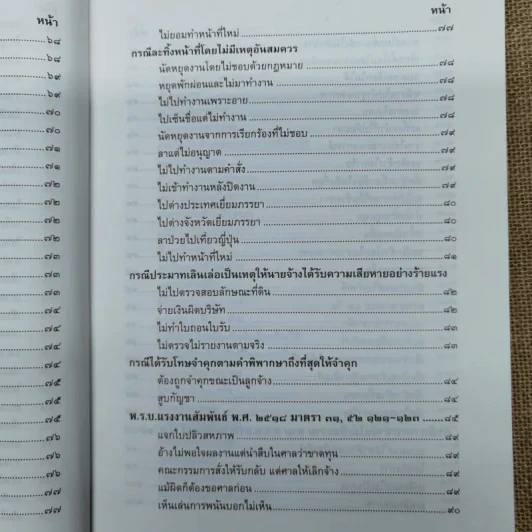 หน้า
๖๘
๖๘
๖๙
๖๙
๗๐
๗๐
๗๑
๗๑
๗๒
๗๒
๗๒
๗๓
๗๓
๗๔
๗๔
๗๔
๗๕
๗๕
๗๖
๗๖
๗๖
๗๗
๗๗
หน้า
ไม่ยอมทำหน้าที่ใหม่ ๗๗
กรณีละทิ้งหน้าที่โดยไม่มีเหตุอันสมควร
นัดหยุดงานโดยไม่ชอบด้วยกฎหมาย ๗๘
หยุดพักผ่อนและไม่มาทำงาน ๗๘
ไม่ไปทำงานเพราะอาย ๗๘
ไปเซ็นชื่อแต่ไม่ทำงาน ๗๘
นัดหยุดงานจากการเรียกร้องที่ไม่ชอบ ๗๙
ลาแต่ไม่อนุญาต ๗๙
ไม่ไปทำงานตามคำสั่ง ๗๙
ไม่เข้าทำงานหลังปิดงาน ๗๙
ไปต่างประเทศเยี่ยมภรรยา ๘๐
ไปต่างจังหวัดเยี่ยมภรรยา ๘๐
ลาป่วยไปเที่ยวญี่ปุ่น ๘๐
ไม่ไปทำหน้าที่ใหม่ ๘๑
กรณีประมาทเลินเล่อเป็นเหตุให้นายจ้างได้รับความเสียหายอย่างร้ายแรง
ไม่ไปตรวจสอบลักษณะที่ดิน ๘๒
จ่ายเงินผิดบริษัท ๘๒
ไม่ทำใบถอนใบรับ ๘๓
ไม่ตรวจไม่รายงานตามจริง ๘๓
กรณีได้รับโทษจำคุกตามคำพิพากษาถึงที่สุดให้จำคุก
ต้องถูกจำคุกขณะเป็นลูกจ้าง ๘๔
สูบกัญชา ๘๔
พ.ร.บ.แรงงานสัมพันธ์ พ.ศ. ๒๕๑๘ มาตรา ๓๑, ๕๒ ๑๒๑-๑๒๓ ๘๕
แจกใบปลิวสหภาพ ๘๙
อ้างไม่พอใจผลงานแต่นำสืบในศาลว่าขาดทุน ๘๙
คณะกรรมการสั่งให้รับกลับ แต่ศาลให้เลิกจ้าง ๘๙
แม้ผิดก็ต้องขอศาลก่อน ๘๙
เห็นเล่นการพนันบอกไม่เห็น ๙๐